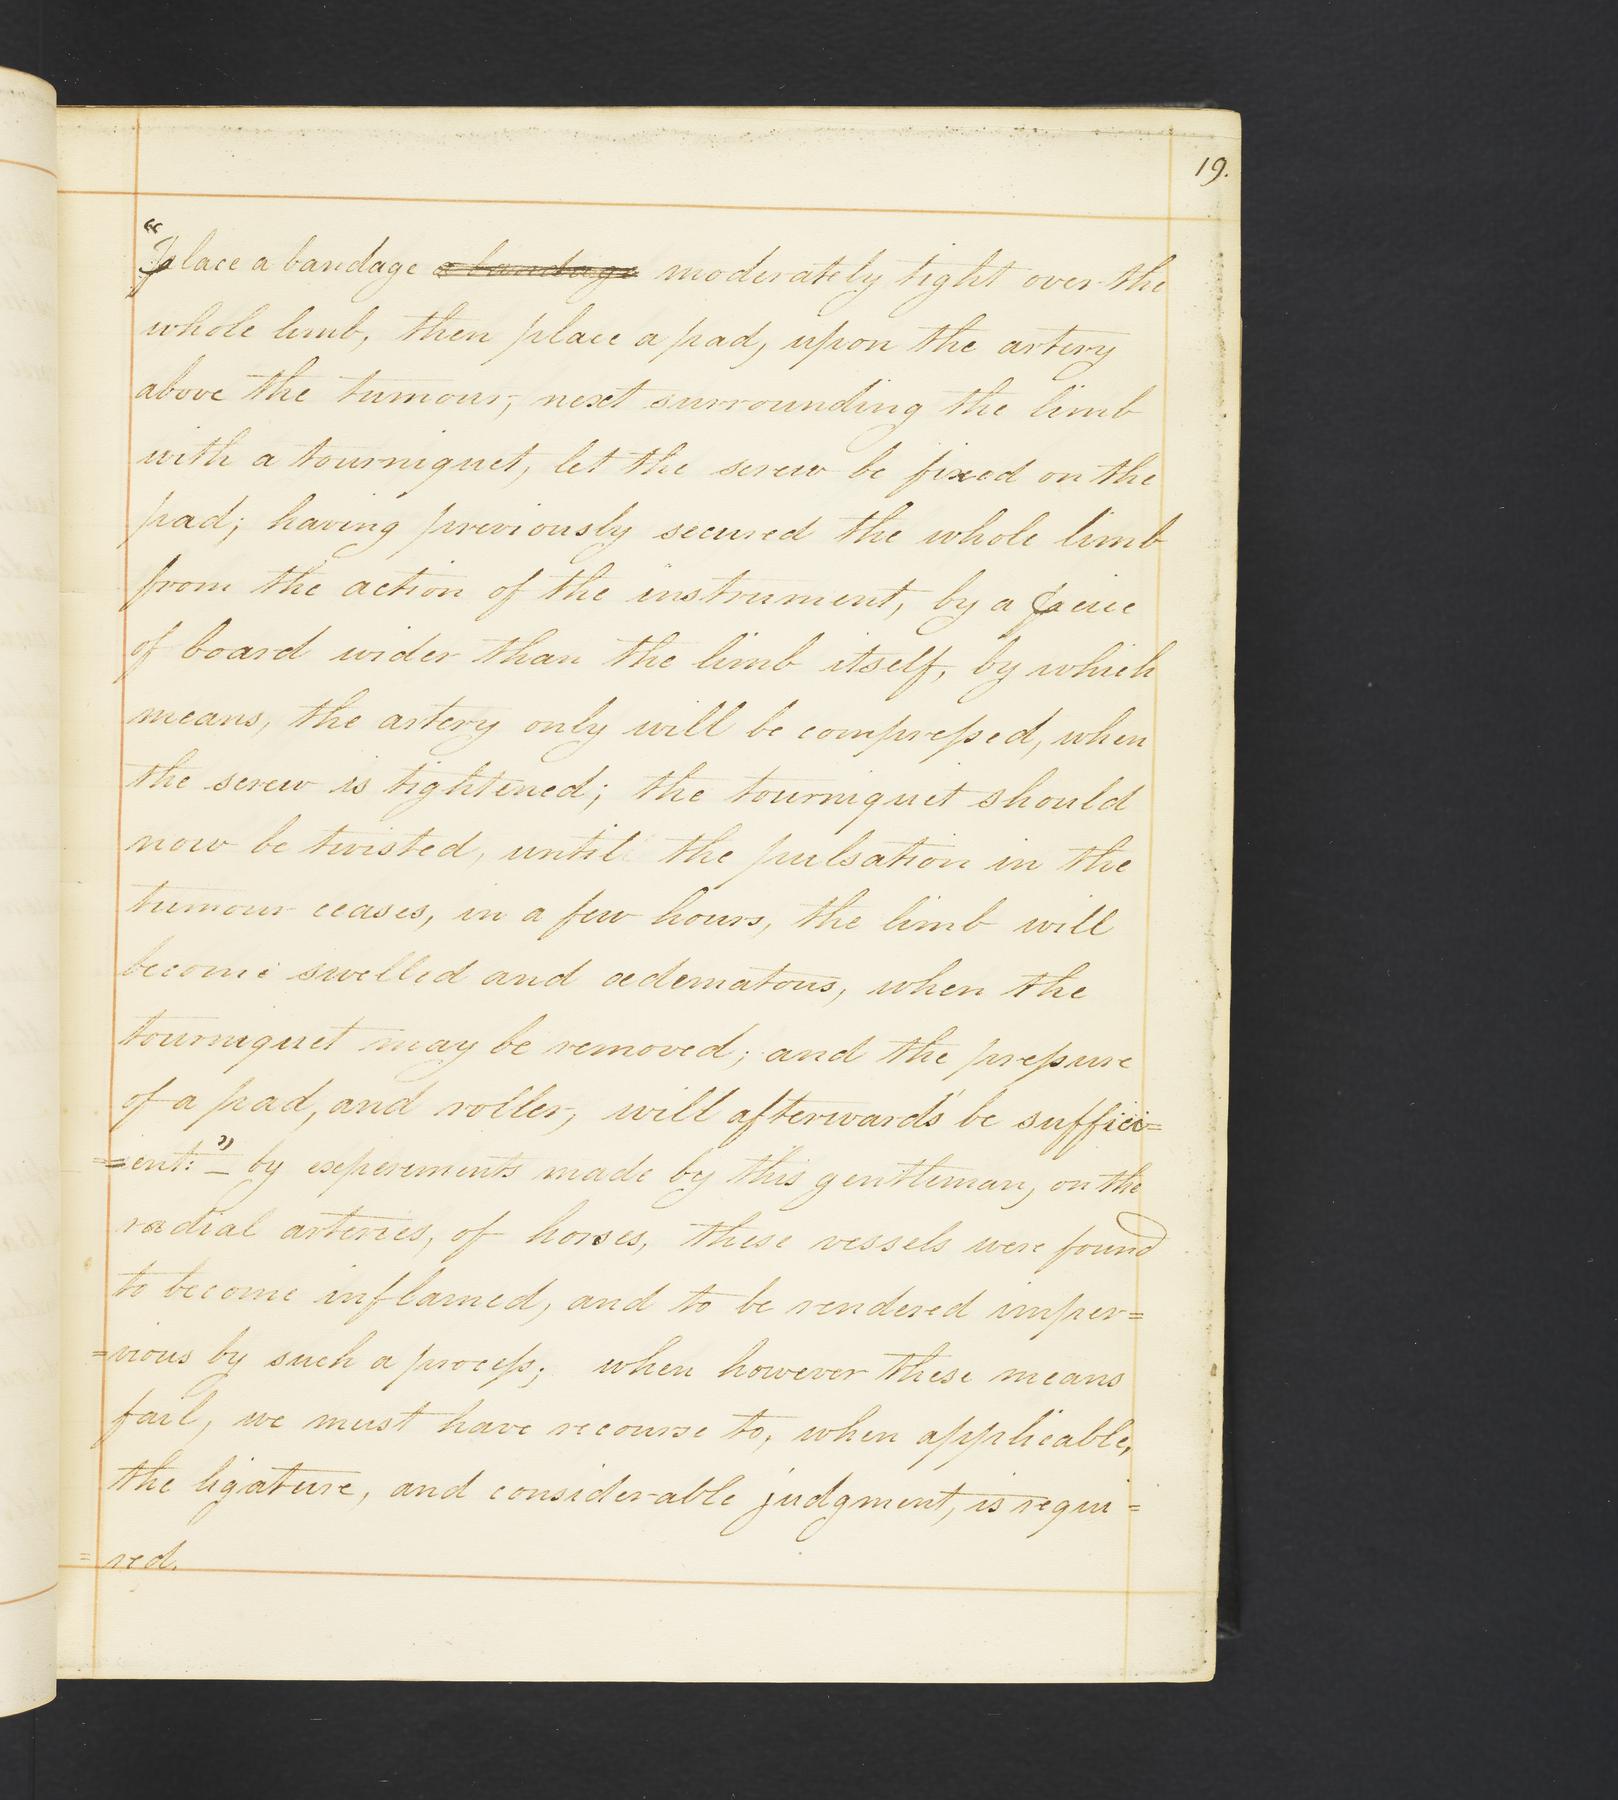 19.
"place a bandage a bandage moderately tight over the
whole limb, then place a pad, upon the artery
above the tumour, next surrounding the limb
with a tourniquet, let the screw be fixed on the
pad; having previously secured the whole limb
from the action of the instrument, by a peice
of board wider than the limb itself, by which
means, the artery only will be compressed, when
the screw is tightened; the tourniquet should
now be twisted, until the pulsation in the
tumour ceases, in a few hours, the limb will
become swelled and œdematous, when the
tourniquet may be removed; and the pressure
of a pad, and roller, will afterwards be suffici=
=ent:" _ by experiments made by this gentleman, on the
radial arteries, of horses, these vessels were found
to become inflamed, and to be rendered imper=
=vious by such a process; when however these means
fail, we must have recourse to, when applicable,
the ligature, and considerable judgment, is requi=
=red.